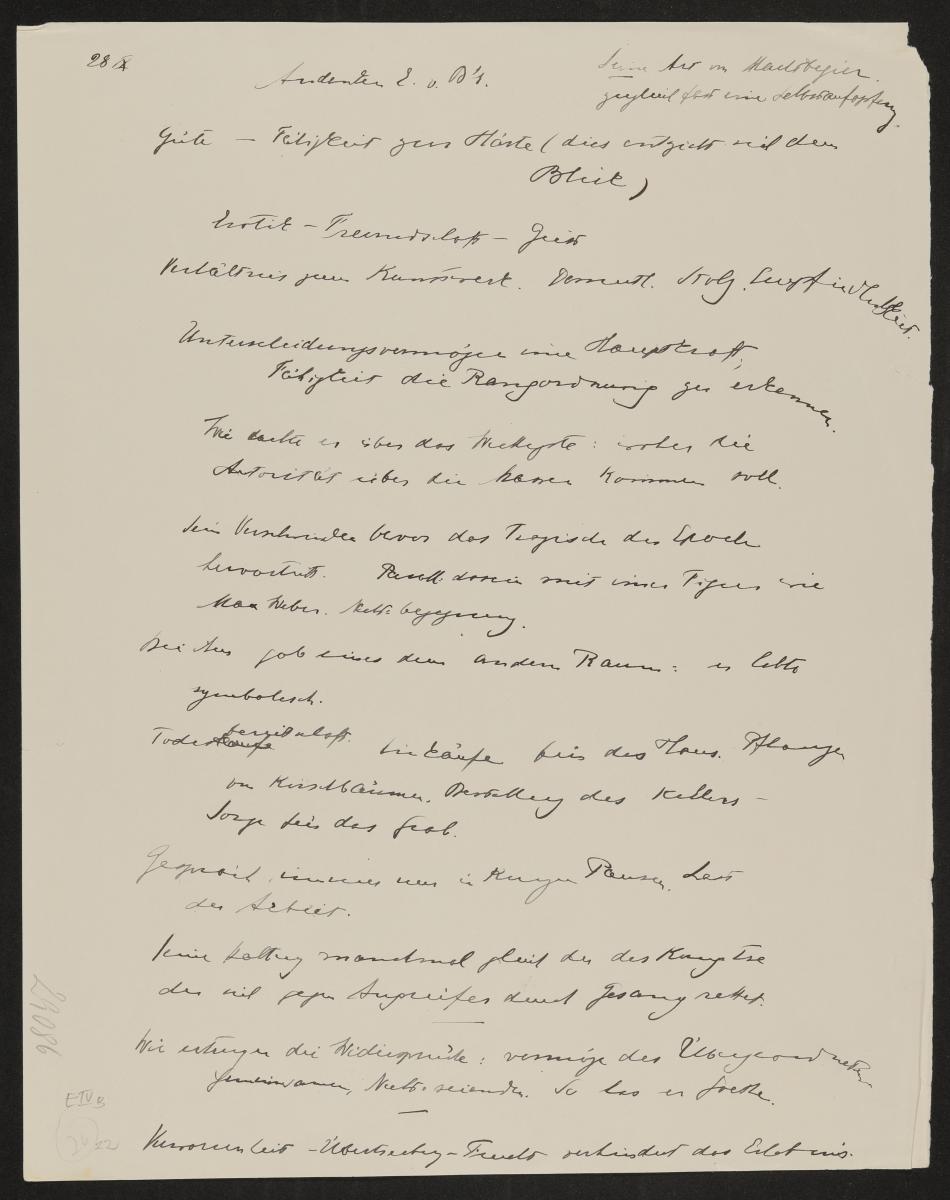 28 X
Andenken E. v. B's.
Seine Art von Machtbegier.
zugleich fast eine Selbstaufopferung.
Güte – Fähigkeit zur Härte (dies entzieht sich dem
Blick)
Erotik – Freundschaft – Geist
Verhältnis zum Kunstwerk. Demut. Stolz. Empfindlichkeit.
Unterscheidungsvermögen eine Hauptkraft,
Fähigkeit die Rangordnung zu erkennen.
Wie dachte er über das Wichtigste: woher die
Autorität über die Massen kommen soll.
Sein Verschwinden bevor das Tragische der Epoche
hervortritt. mit einer Figur wie
Max Weber. Nichtbegegnung.
Die Art gab eines dem andern Raum: er lebte
symbolisch.
Todesbereitschaft. Einkäufe für das Haus. Pflanzen
von Kirschbäumen. Bestellung des Kellers –
Sorge für das Grab.
Gespräch immer nur in kurzen Pausen. Last
der Arbeit.
Seine Haltung manchmal gleich der des Kungtse
der sich gegen Angreifer durch Gesang rettet.
Wir ertrugen die Widersprüche: vermöge des Übergeordneten
Gemeinsamen, Nicht-seienden. So las er Goethe.
Verworrenheit – Überhebung – Furcht verhindert das Erlebnis.
24086
E IV B
22